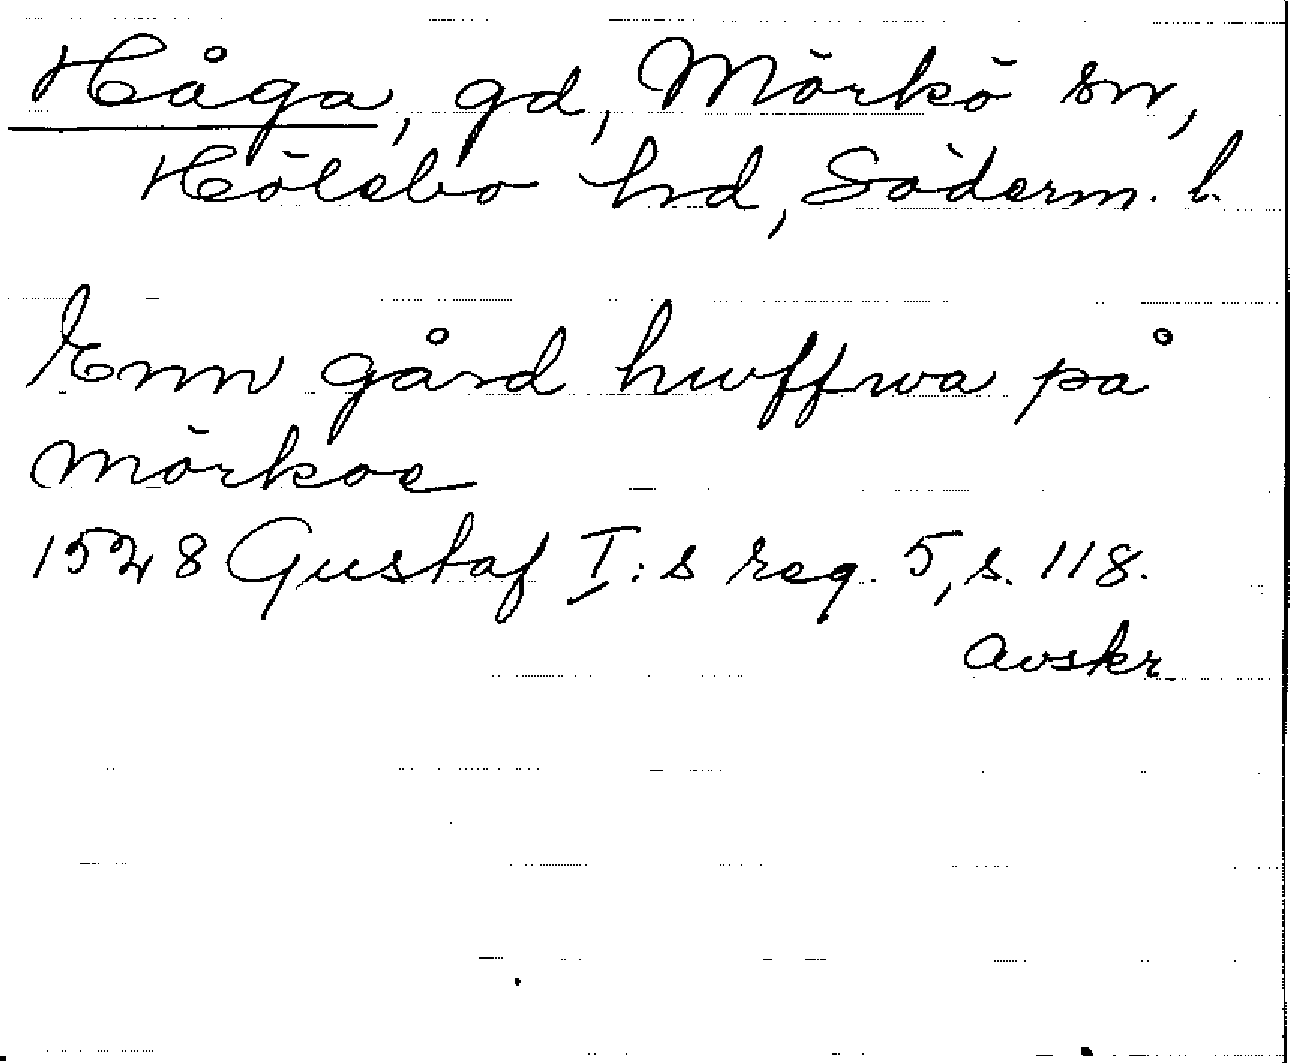 Håga, gd, Mörkö sn,
Hölebo hd, Söderm. l.
Enn gård huffwa på
Mörkoe
1528 Gustaf I:s reg. 5, s. 118.
Avskr.